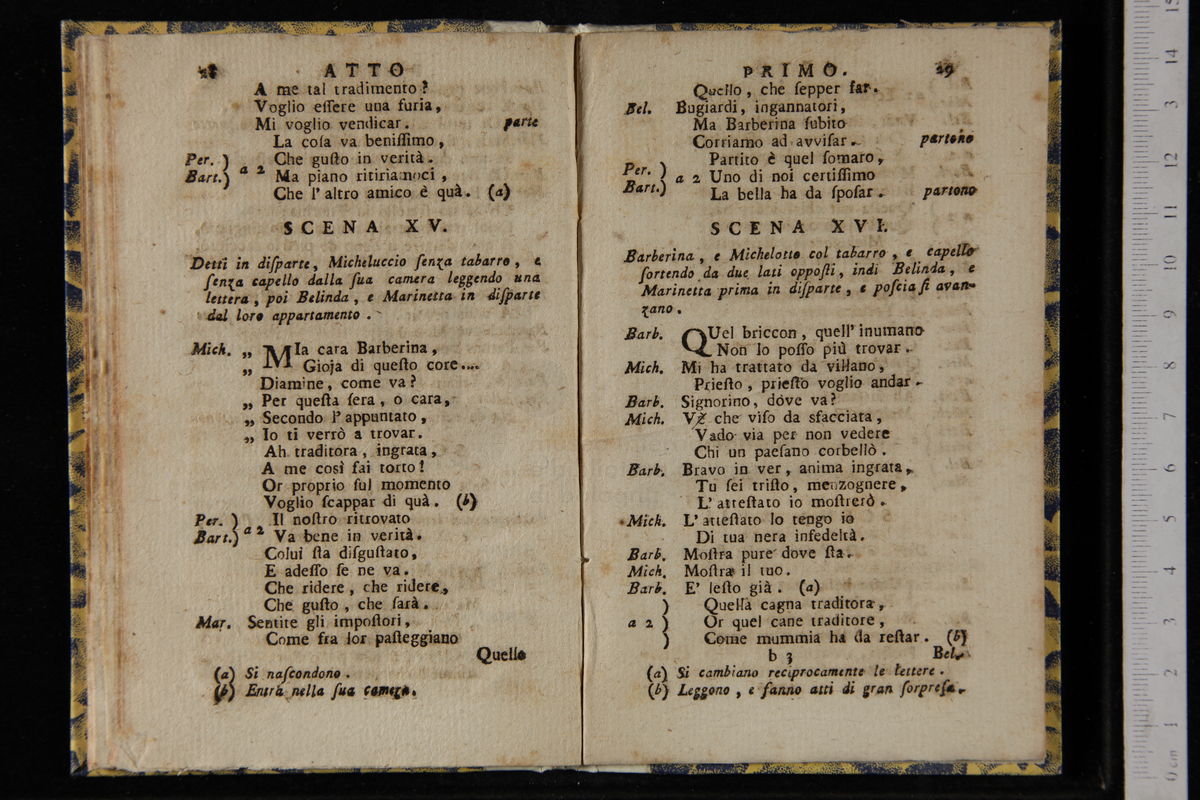 28 ATTO
A me tal tradimento?
Voglio eſſere una furia,
Mi voglio vendicar. parte
La coſa va beniſſimo,
Per. } a 2 Che guſto in verità.
Bart. } Ma piano ritiriamoci,
Che l'altro amico è quà. (a)
SCENA XV.
Detti in diſparte, Micheluccio ſenza tabarro, e
ſenza capello dalla ſua camera leggendo una
lettera, poi Belinda, e Marinetta in diſparte
dal loro appartamento.
Mich. „ MIa cara Barberina,
„ Gioja di queſto core....
Diamine, come va?
„ Per queſta ſera, o cara,
„ Secondo l'appuntato,
„ Io ti verrò a trovar.
Ah traditora, ingrata,
A me così fai torto!
Or proprio ſul momento
Voglio ſcappar di quà. (b)
Per. } a 2 Il noſtro ritrovato
Bart. } Va bene in verità.
Colui ſta diſguſtato,
E adeſſo ſe ne va.
Che ridere, che ridere,
Che guſto, che ſarà.
Mar. Sentite gli impoſtori,
Come fra lor paſteggiano
Quello
(a) Si naſcondono.
(b) Entra nella ſua camera.
PRIMO. 29
Quello, che ſepper far.
Bel. Bugiardi, ingannatori,
Ma Barberina ſubito
Corriamo ad avviſar. partono
Partito è quel ſomaro,
Per. } a 2 Uno di noi certiſſimo
Bart. } La bella ha da ſpoſar. partono
SCENA XVI.
Barberina, e Michelotto col tabarro, e capello
ſortendo da due lati oppoſti, indi Belinda, e
Marinetta prima in diſparte, e poſcia ſi avan-
zano.
Barb. QUel briccon, quell'inumano
Non lo poſſo più trovar.
Mich. Mi ha trattato da villano,
Prieſto, prieſto voglio andar.
Barb. Signorino, dove va?
Mich. Ve che viſo da sfacciata,
Vado via per non vedere
Chi un paeſano corbellò.
Barb. Bravo in ver, anima ingrata,
Tu ſei triſto, menzognere,
L'atteſtato io moſtrerò.
Mich. L'atteſtato lo tengo io
Di tua nera infedeltà.
Barb. Moſtra pure dove ſta.
Mich. Moſtra il tuo.
Barb. E' leſto già. (a)
} Quella cagna traditora,
a 2 } Or quel cane traditore,
} Come mummia ha da reſtar. (b)
b 3 Bel.
(a) Si cambiano reciprocamente le lettere.
(b) Leggono, e fanno atti di gran ſorpreſa.
0 cm 1 2 3 4 5 6 7 8 9 10 11 12 13 14 15